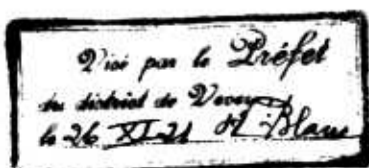 Visé par le Préfet
du district de Vevey
le 26 XI-21 H. Blanc